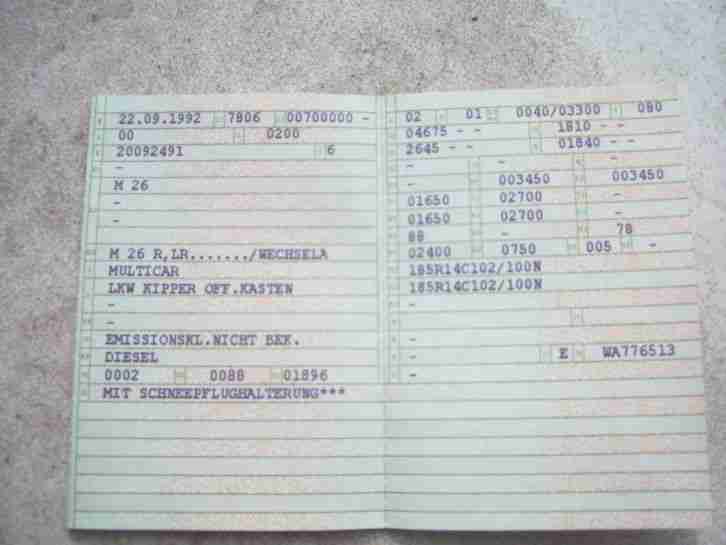 22.09.1992 7806 00700000 -
00 0200
20092491 6
-
M 26
-
-
M 26 R,LR......./WECHSELA
MULTICAR
LKW KIPPER OFF.KASTEN
-
-
EMISSIONSKL.NICHT BEK.
DIESEL
0002 0088 01896
MIT SCHNEEPFLUGHALTERUNG***
02 01 0040/03300 080
04675 - - 1810 - -
2645 - - 01840 - -
- - -
- 003450 003450
01650 02700 -
01650 02700 -
88 - 78
02400 0750 005 -
185R14C102/100N
185R14C102/100N
-
-
-
- E WA776513
-